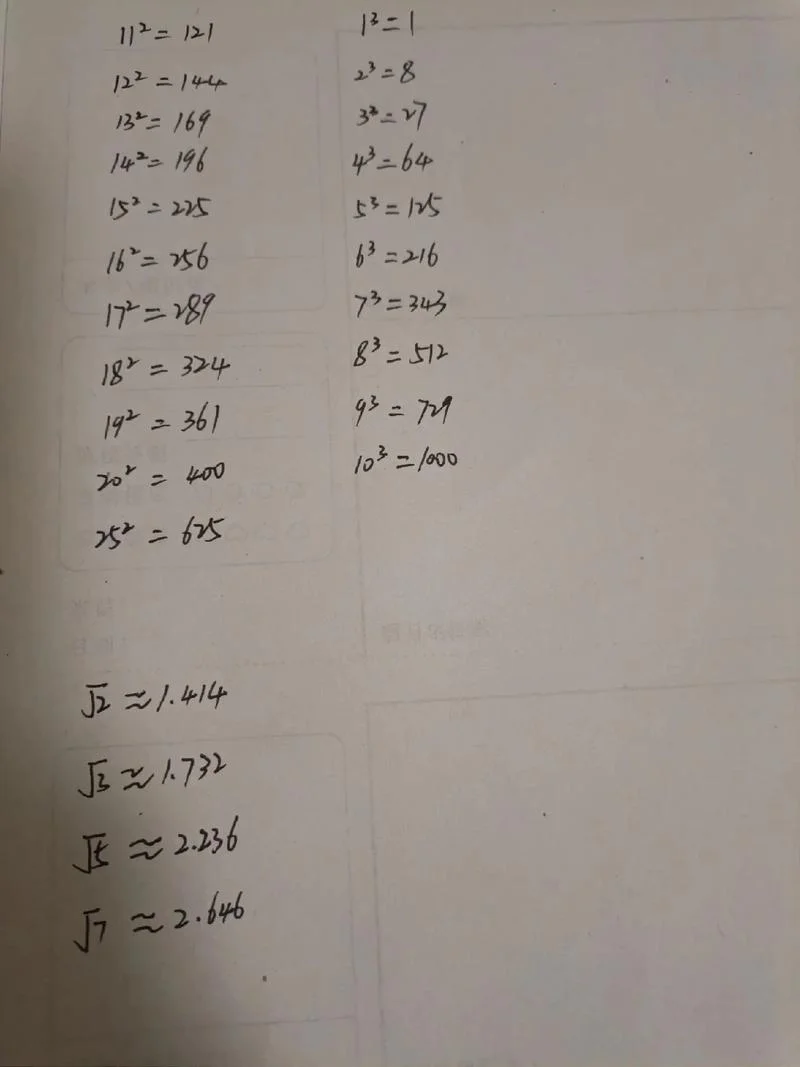 11² = 121
12² = 144
13² = 169
14² = 196
15² = 225
16² = 256
17² = 289
18² = 324
19² = 361
20² = 400
25² = 625
1³ = 1
2³ = 8
3³ = 27
4³ = 64
5³ = 125
6³ = 216
7³ = 343
8³ = 512
9³ = 729
10³ = 1000
√2 ≈ 1.414
√3 ≈ 1.732
√5 ≈ 2.236
√7 ≈ 2.646